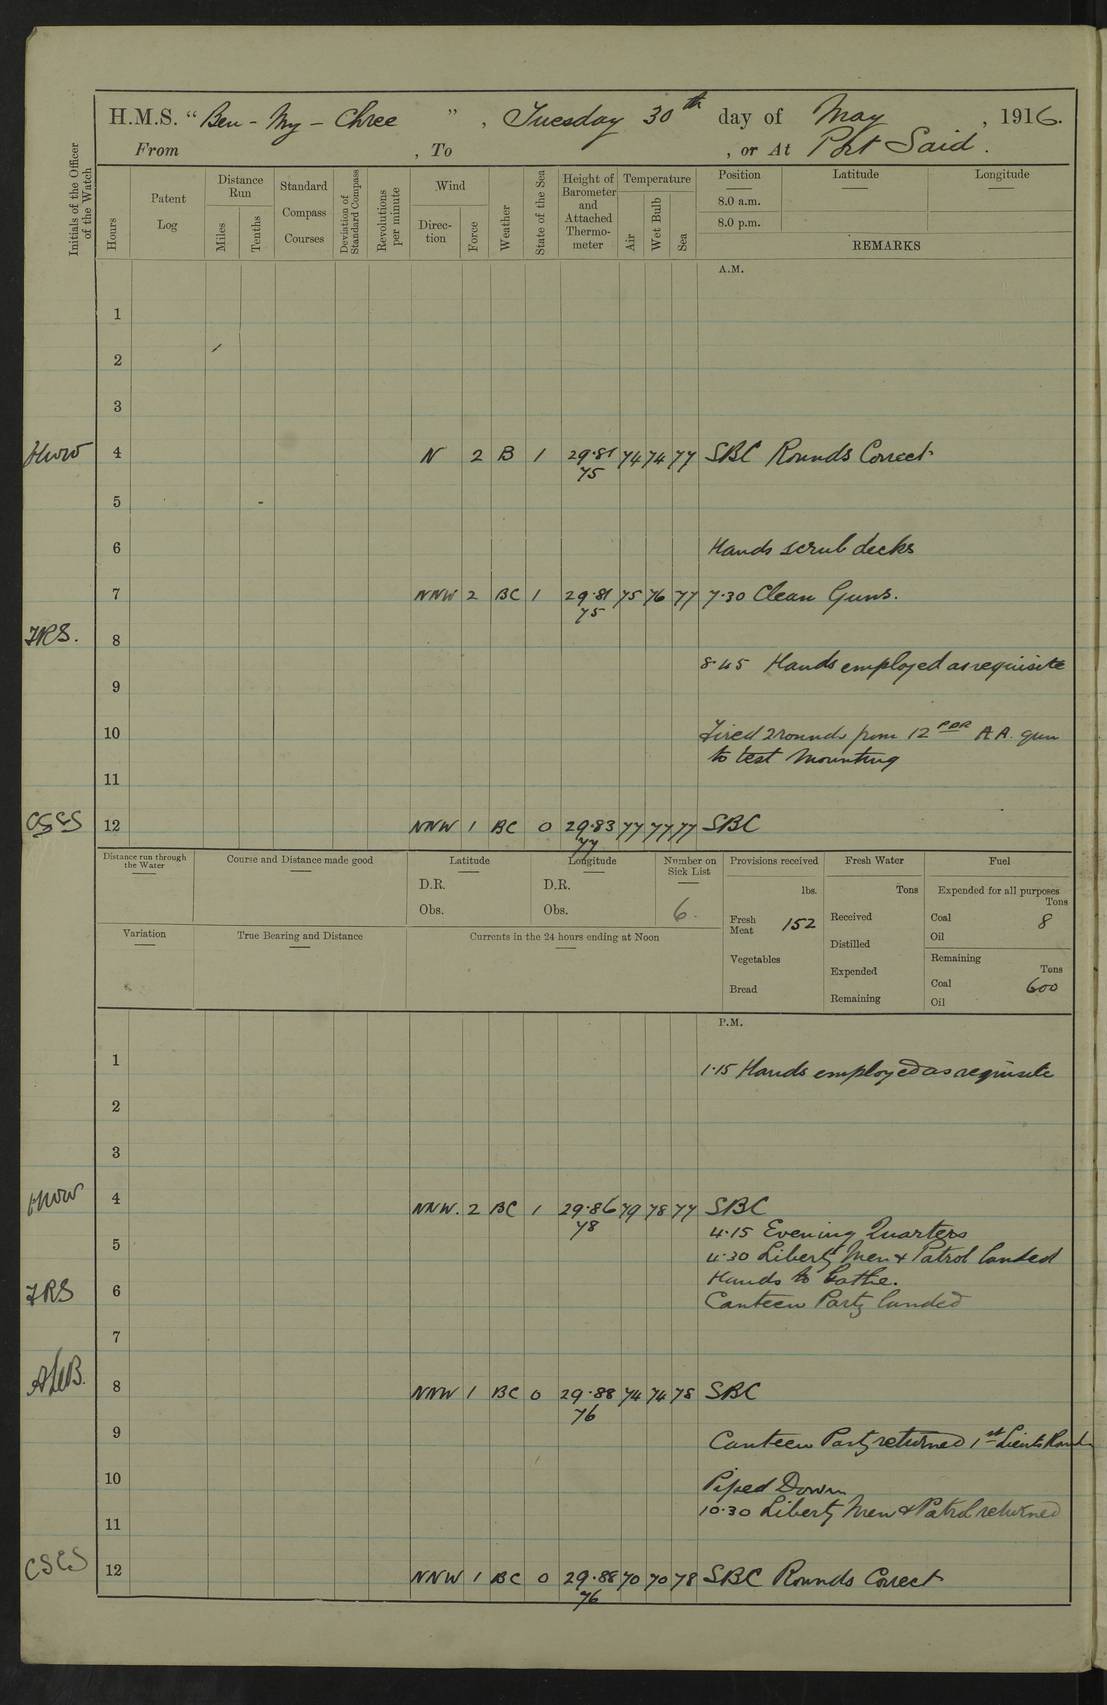 H.M.S. "Ben-My-Chree", Tuesday 30th day of May, 1916.
From , To , or At Port Said.
Initials of the Officer of the Watch
Hours
Patent Log
Distance Run
Miles
Tenths
Standard Compass Courses
Deviation of Standard Compass
Revolutions per minute
Wind
Direction
Force
Weather
State of the Sea
Height of Barometer and Attached Thermometer
Temperature
Air
Wet Bulb
Sea
Position
Latitude
Longitude
8.0 a.m.
8.0 p.m.
REMARKS
A.M.
1
2
3
HWW 4 N 2 B 1 29.81 74 74 77 SBC Rounds Correct
75
5
6 Hands scrub decks
7 NNW 2 BC 1 29.81 75 76 77 7.30 Clean Guns.
75
JRS. 8
8.45 Hands employed as requisite
9
10 Fired 2 rounds from 12 PDR A.A. gun
to test mounting
11
CSCS 12 NNW 1 BC 0 29.83 77 77 77 SBC
77
Distance run through the Water
Course and Distance made good
Latitude
D.R.
Obs.
Longitude
D.R.
Obs.
Number on Sick List
6.
Provisions received
lbs.
Fresh Meat 152
Vegetables
Bread
Fresh Water
Tons
Received
Distilled
Expended
Remaining
Fuel
Expended for all purposes
Tons
Coal 8
Oil
Remaining
Tons
Coal 600
Oil
Variation
True Bearing and Distance
Currents in the 24 hours ending at Noon
P.M.
1 1.15 Hands employed as requisite
2
3
HWW 4 NNW. 2 BC 1 29.86 79 78 77 SBC
78
4.15 Evening Quarters
5 4.30 Liberty Men & Patrol landed
Hands to bathe.
JRS 6 Canteen Party landed
7
8 NNW 1 BC 0 29.88 74 74 78 SBC
76
9 Canteen Party returned 1st Lieuts Rounds
10 Piped Down
10.30 Liberty Men & Patrol returned
11
CSCS 12 NNW 1 BC 0 29.88 70 70 78 SBC Rounds Correct
76